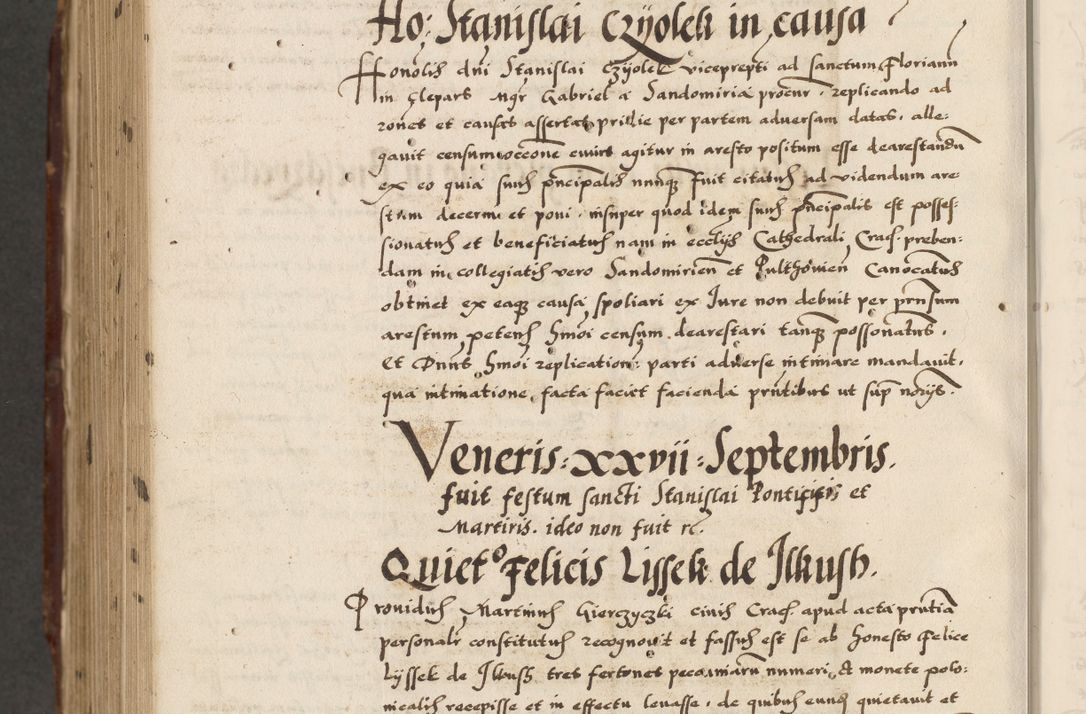 Ho: Stanislai Czyolek in causa
Honolis dni Stanislai Czyolek viceprepti ad sanctum Florianu
in Cleparz Mgr Gabriel a Sandomiria procur. replicando ad
rones et causas assertas pridie per partem adversam datas, alle:
gavit censum occone cuius agitur in aresto positum esse dearestandu
ex eo quia suus principalis nunq fuit citatus ad videndum are
stum decerni et poni, insuper quod idem suus principalis est posses:
sionatus et beneficiatus nam in ecclis Cathedrali Crac. preben:
dam in collegiatis vero Sandomirien et Pulthovien Canocatus
obtinet ex eaq causa spoliari ex Iure non debuit per prnsum
arestum petens hmoi censum dearestari tanq possonatus.
Et Dnus hmoi replication: parti adverse intimare mandavit,
qua intimatione facta faciet facienda pntibus ut sup norijs.
Veneris: xxvii: Septembris.
fuit festum sancti Stanislai Pontificis et
Martiris. ideo non fuit re.
Quieto Felicis Lissek de Ilkush.
Providus Martinus Gierczyczki civis Crac. apud acta pntia
personalr constitutus recognovit et fassus est se ab honesto Felice
Lyssek de Ilkush tres fertones pecuniaru numeri et monete polo:
nicalis recepisse et in effectu levasse, de quibus eundem quietavit et